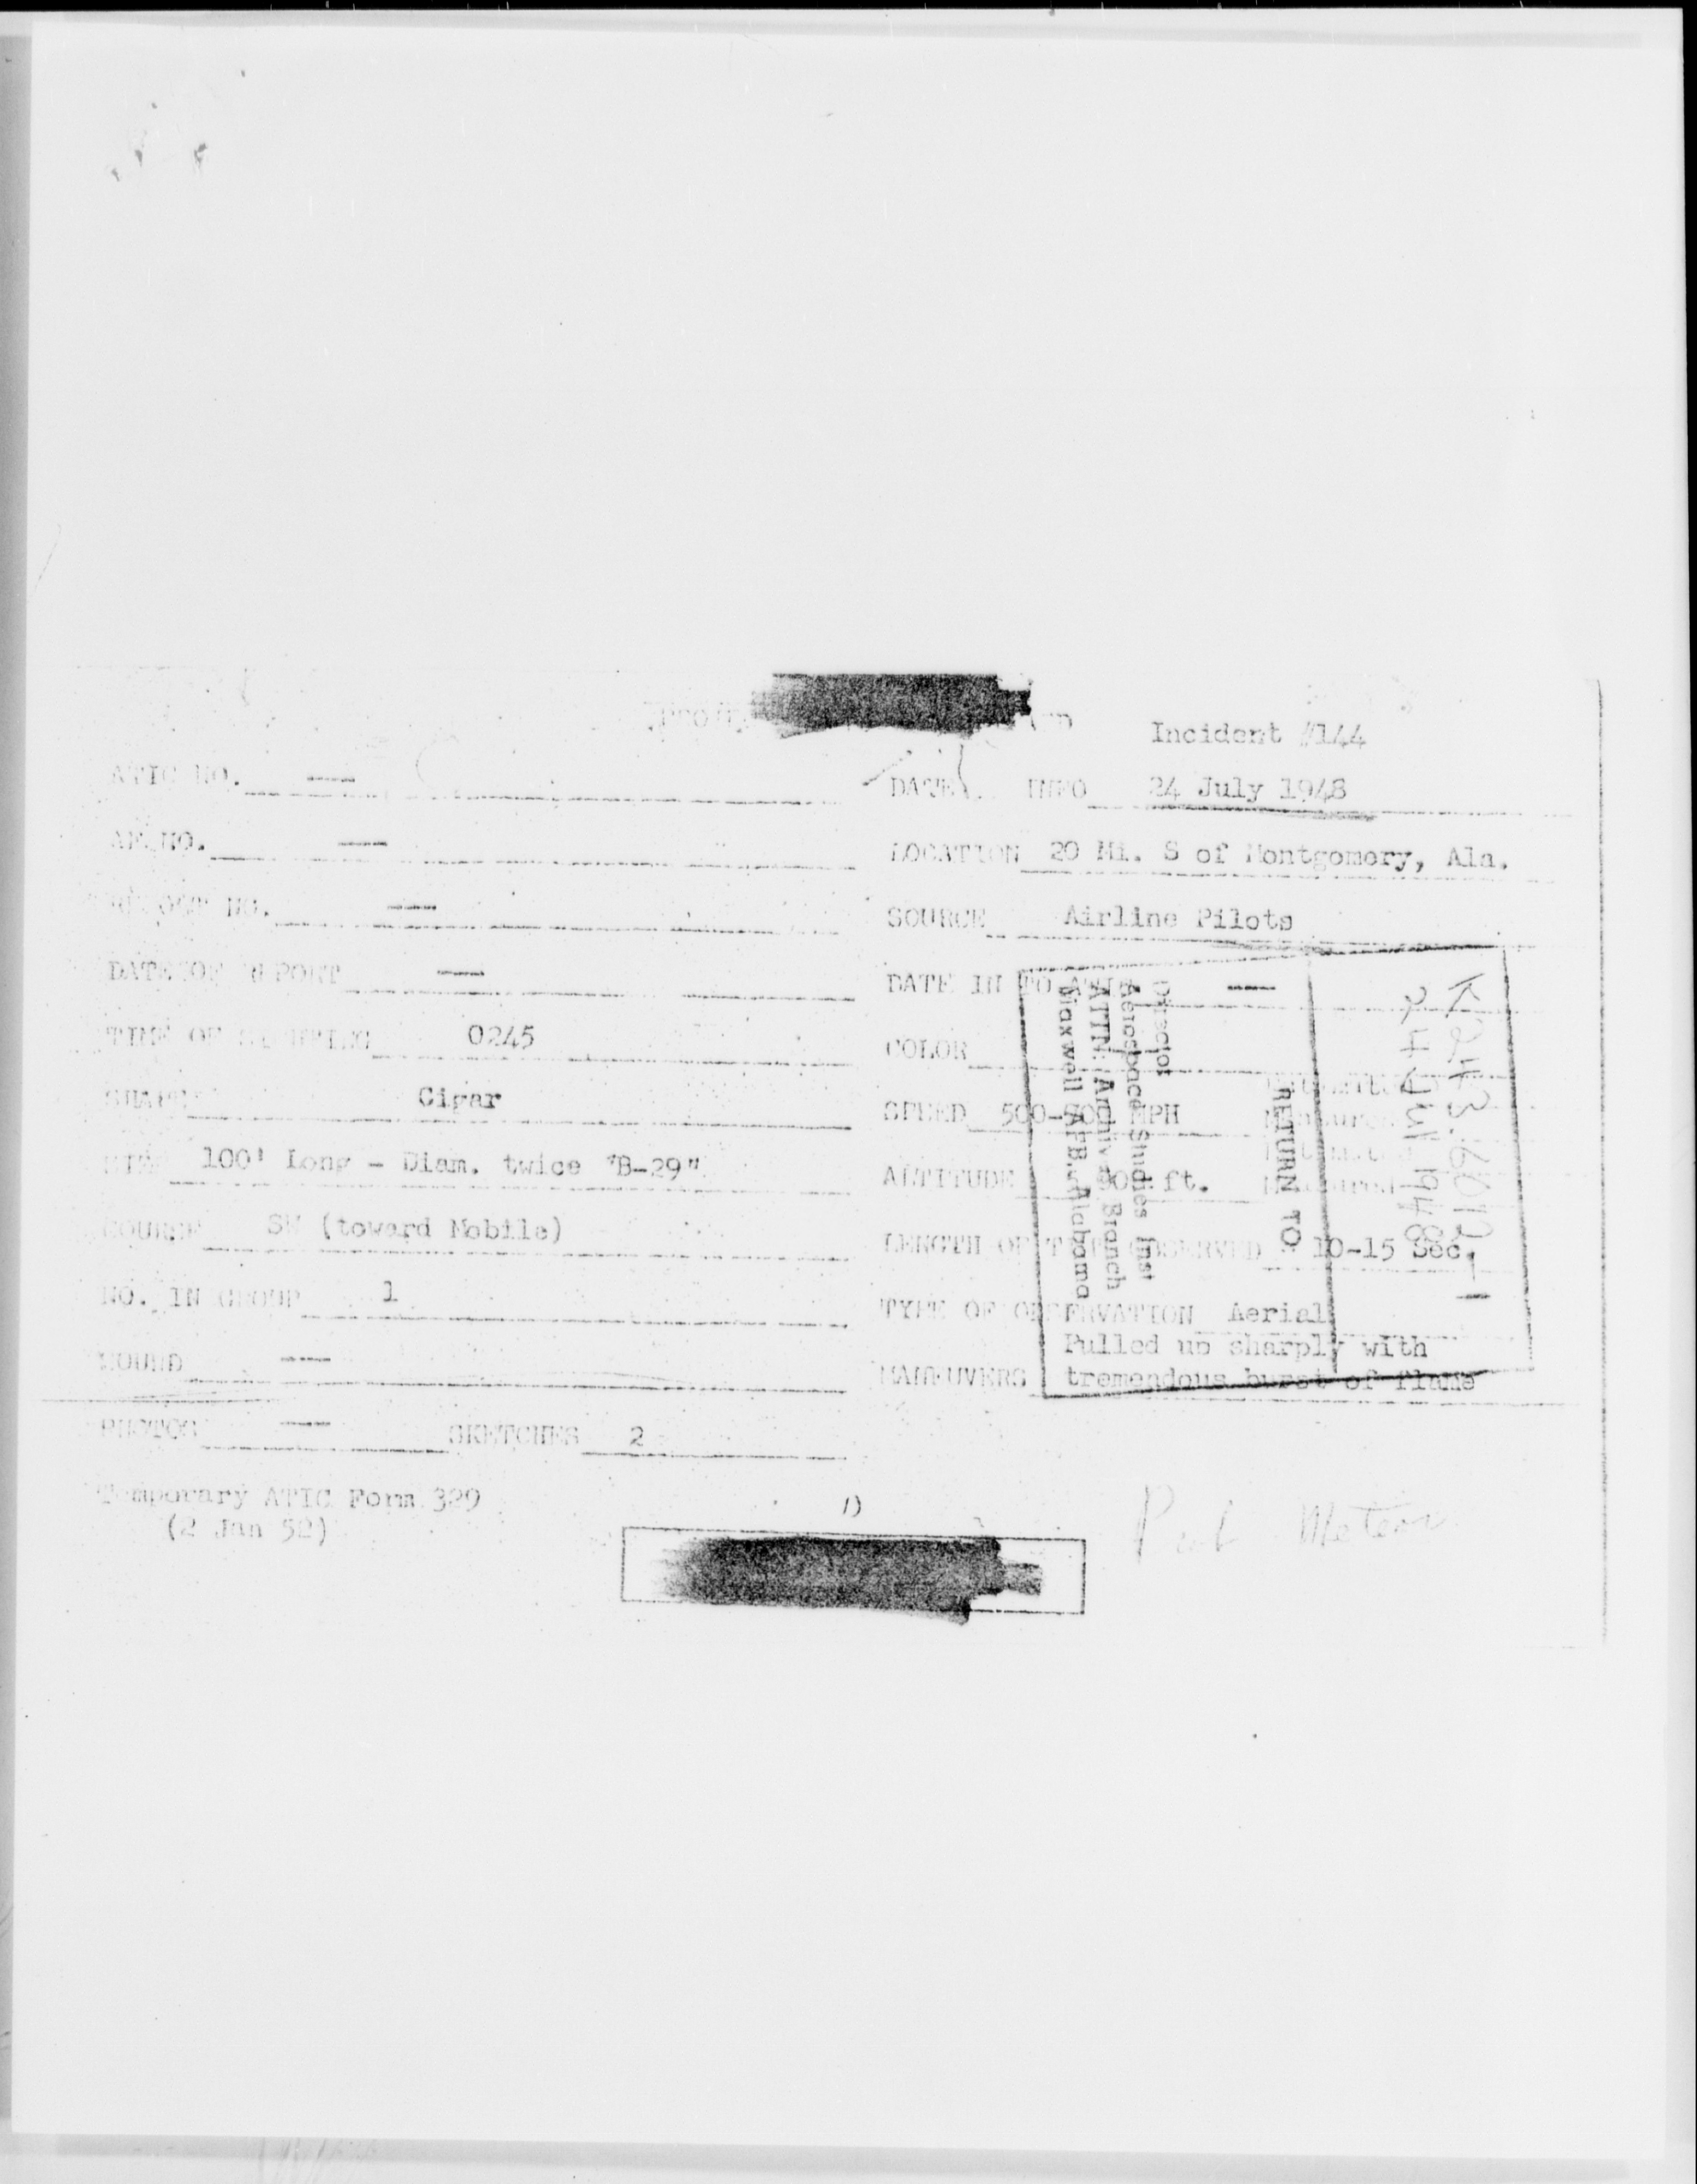 Incident #144
ATIC NO. —
DATE INFO 24 July 1948
AF NO. —
LOCATION 20 Mi. S of Montgomery, Ala.
REPORT NO. —
SOURCE Airline Pilots
DATE OF REPORT —
DATE IN TO ATIC —
TIME OF SIGHTING 0245
COLOR
SHAPE Cigar
SPEED 500- MPH
SIZE 100' Long - Diam. twice "B-29"
ALTITUDE ft.
COURSE SW (toward Mobile)
LENGTH OF TIME OBSERVED 10-15 Sec.
NO. IN GROUP 1
TYPE OF OBSERVATION Aerial
SOUND —
MANEUVERS Pulled up sharply with
tremendous burst of flame
PHOTOS — SKETCHES 2
Temporary ATIC Form 329
(2 Jan 52)
1)
Meteor
RETURN TO
Director
Aerospace Studies Inst
ATTN: Archives Branch
Maxwell AFB, Alabama
24 Jul 1948